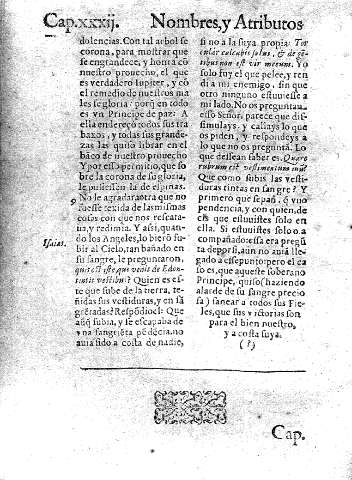 Cap. xxxij. Nombres, y Atributos
dolencias. Con tal arbol se
corona, para mostrar que
se engrandece, y honra cō
nuestro prouecho, el que
es verdadero Iupiter, y cō
el remedio de nuestros ma
les se gloria: porq̄ en todo
es vn Principe de paz: A
ella endereçò todos sus tra
baxos, y todas sus grande-
zas las quiso librar en el
bāco de nuestro prouecho
Y por esso permitio, que so
bre la corona de su gloria,
le pusiessen la de espinas.
No le agradara otra que no
fuesse texida de las mismas
cosas con que nos rescata-
ua, y redimia. Y assi, quan-
Isaiae.
do los Angeles, lo vierō su-
bir al Cielo, tan bañado en
su sangre, le preguntaron,
quis est iste qui venit de Edon
tinctis vestibus? Quien es es-
te que sube de la tierra, te-
ñidas sus vestiduras, y en sā
grētadas? Respōdioel: Que
aūq̄ subia, y se escapaba de
vna sangriēta pēdēcia, no
auia sido a costa de nadie,
si no a la suya propia: Tor
cular calcaui solus, & de gē-
tibus non est vir mecum. Yo
solo fuy el que pelee, y ren
di a mi enemigo, sin que
otro ninguno estuuiesse a
mi lado. No os preguntan
esso Señor, parece que dis-
simulays, y callays lo que
os piden, y respondeys a
lo que no os preguntā. Lo
que dessean saber es. Quare
rubrum est vestimentum tuū?
Que como subis las vesti-
duras tintas en sangre? Y
primero que sepan, q̄ vuo
pendencia, y con quien, de
cis que estuuistes solo en
ella. Si estuuistes solo o a-
compañado: essa era pregū
ta de por si, aun no auia lle-
gado a esse punto: pero el ca
so es, que aqueste soberano
Principe, quiso (haziendo
alarde de su sangre precio
sa) sanear a todos sus Fie-
les, que sus victorias son
para el bien nuestro,
y a costa suya.
(?)
Cap.